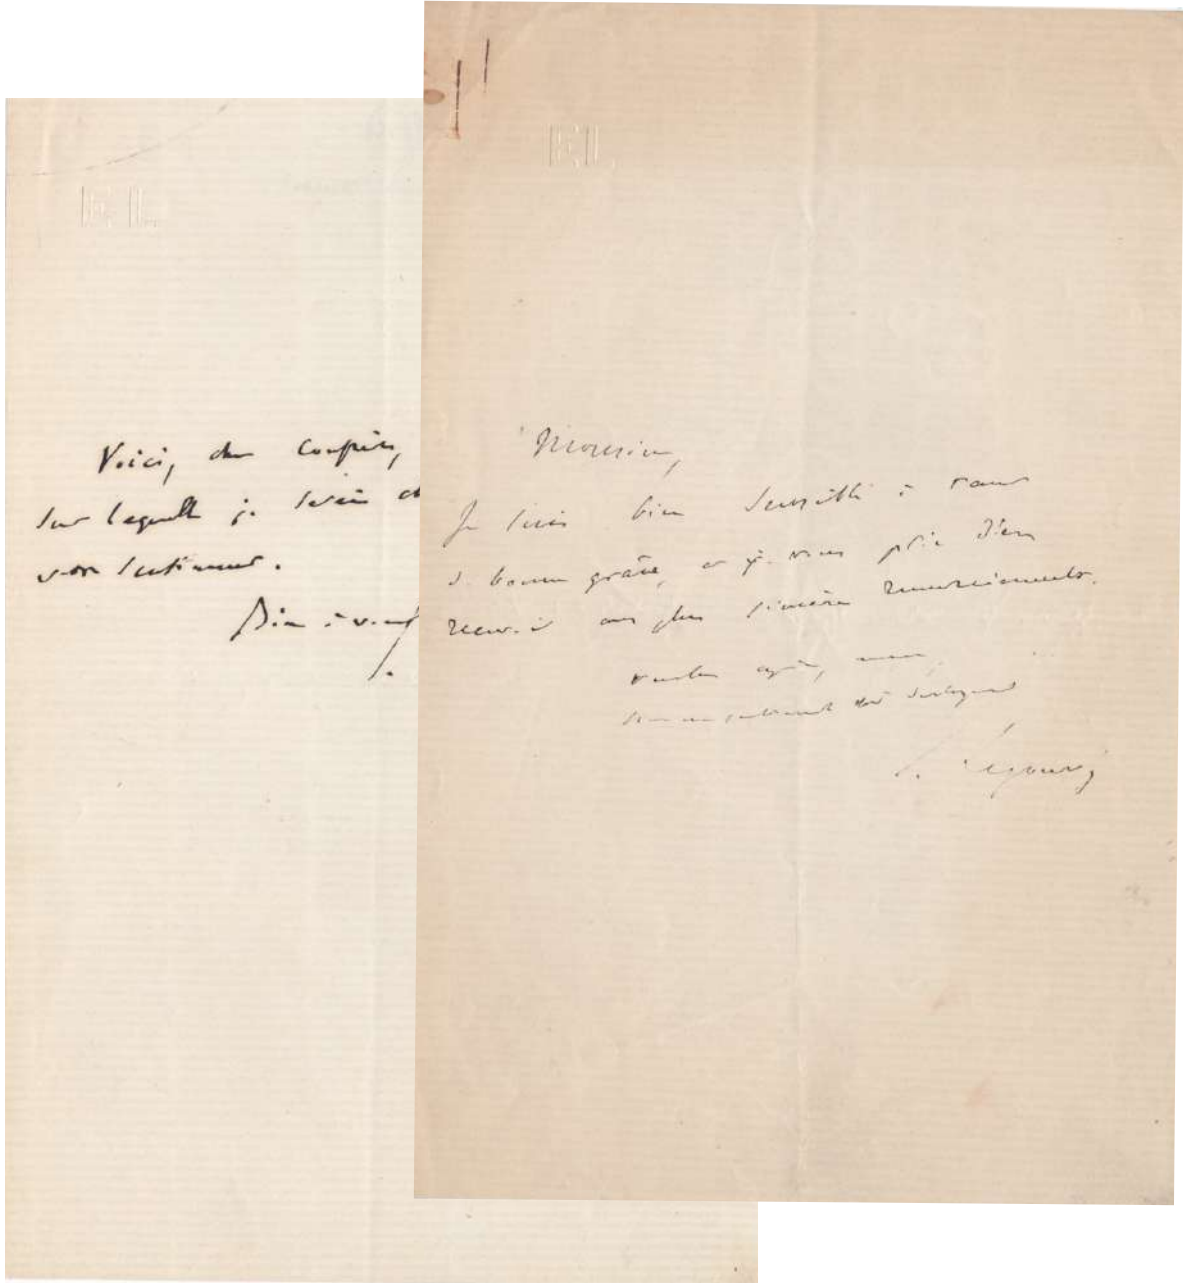 EL
Voici, cher Confrère,
sur laquelle je serai
votre sentiment.
Bien à vous
EL
Monsieur,
Je suis bien sensible à tant
de bonne grâce, et je vous prie d'en
recevoir mes plus sincères remerciements.
Veuillez agréer,
E. Legouvé